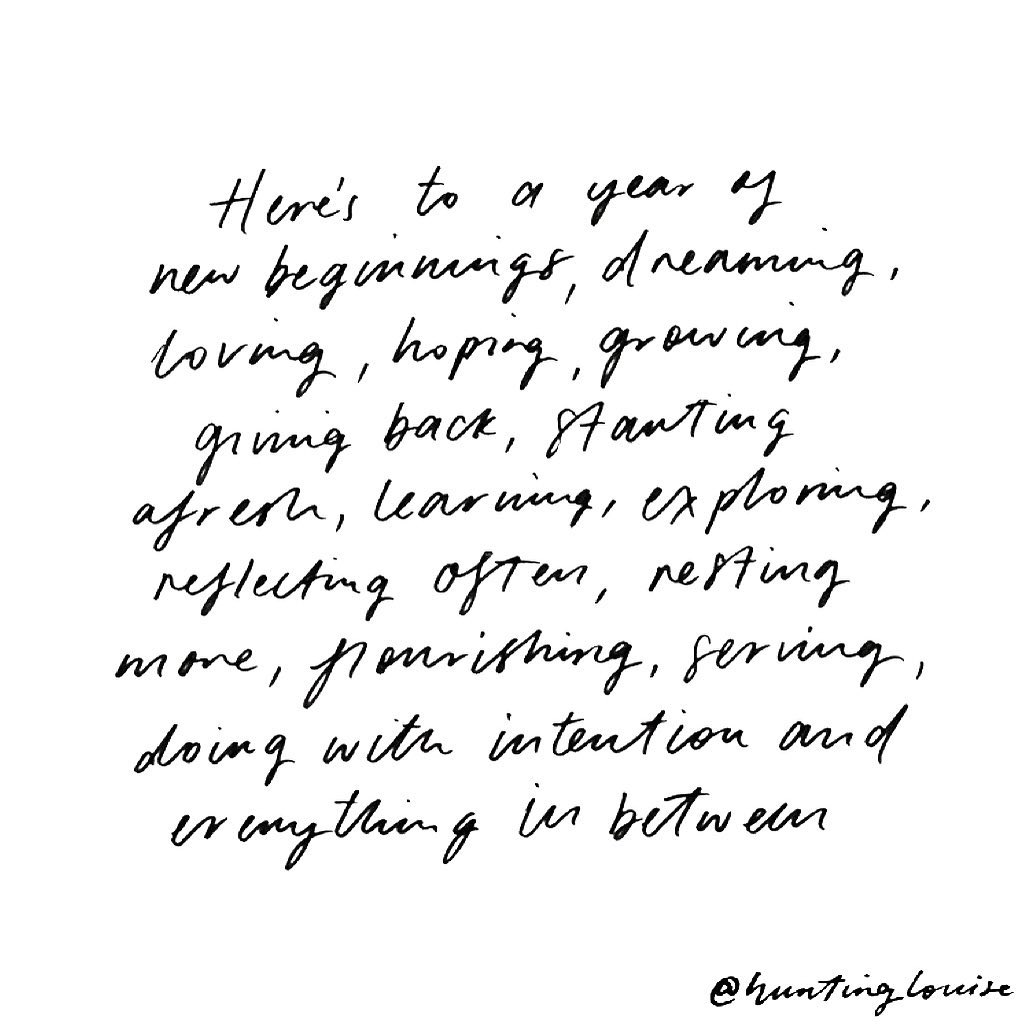 Here's to a year of
new beginnings, dreaming,
loving, hoping, growing,
giving back, starting
afresh, learning, exploring,
reflecting often, resting
more, flourishing, serving,
doing with intention and
everything in between
@huntinglouise